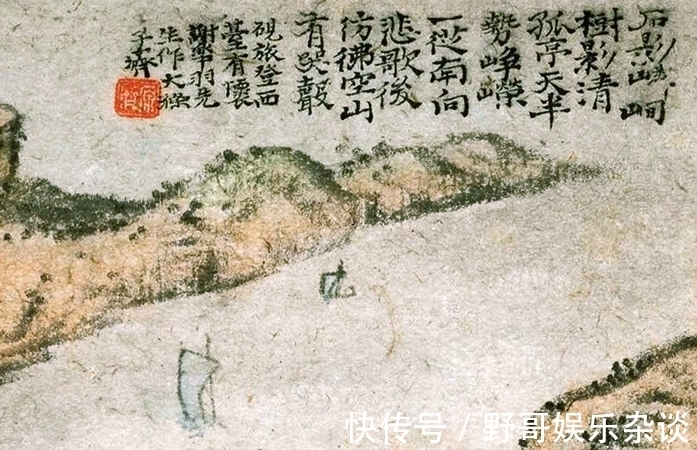 石影嶙峋
樹影清
孤亭天半
勢崢嶸
一從南向
悲歌後
彷彿空山
有哭聲
硯旅登西
臺有懷
謝皋羽先
生作大滌
子濟
快传号 / 野哥娱乐杂谈